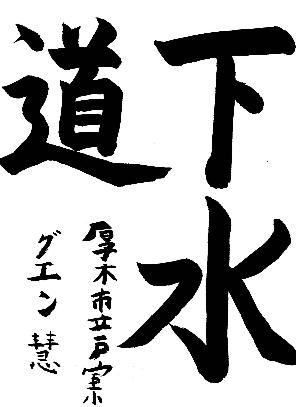 下水
道
厚木市立戸室小
グエン 慧